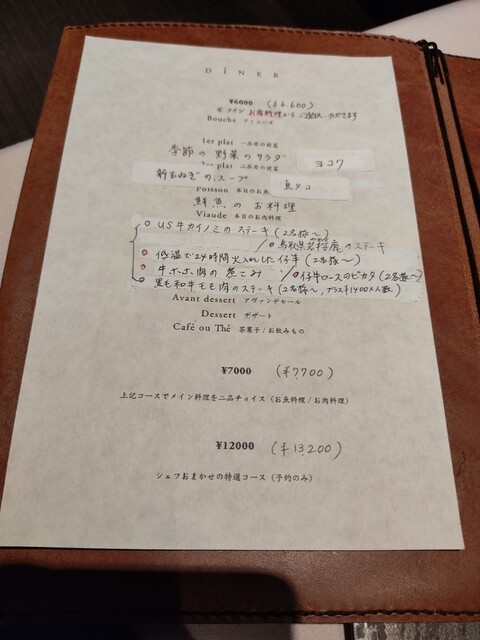 DÎNER
¥6000 (¥6,600)
※メイン お魚料理から ご選択いただきます
Bouche アミューズ
1er plat 一品目の前菜
季節の野菜のサラダ ヨコワ
plat 二品目の前菜
新玉ねぎのスープ 真タコ
Poisson 本日のお魚
鮮魚のお料理
Viaude 本日のお肉料理
○ US牛カイノミのステーキ (2名様〜)
/○鳥取県 のステーキ
○ 低温で24時間火入れした仔羊 (2名様〜)
○ 牛ホホ肉の煮こみ /○仔牛ロースのピカタ (2名様〜)
○ 黒毛和牛モモ肉のステーキ (2名様〜, プラス¥1400×人数)
Avant dessert アヴァンデセール
Dessert デザート
Café ou Thé 茶菓子/お飲みもの
¥7000 (¥7,700)
上記コースでメイン料理を二品チョイス (お魚料理/お肉料理)
¥12000 (¥13,200)
シェフおまかせの特選コース (予約のみ)